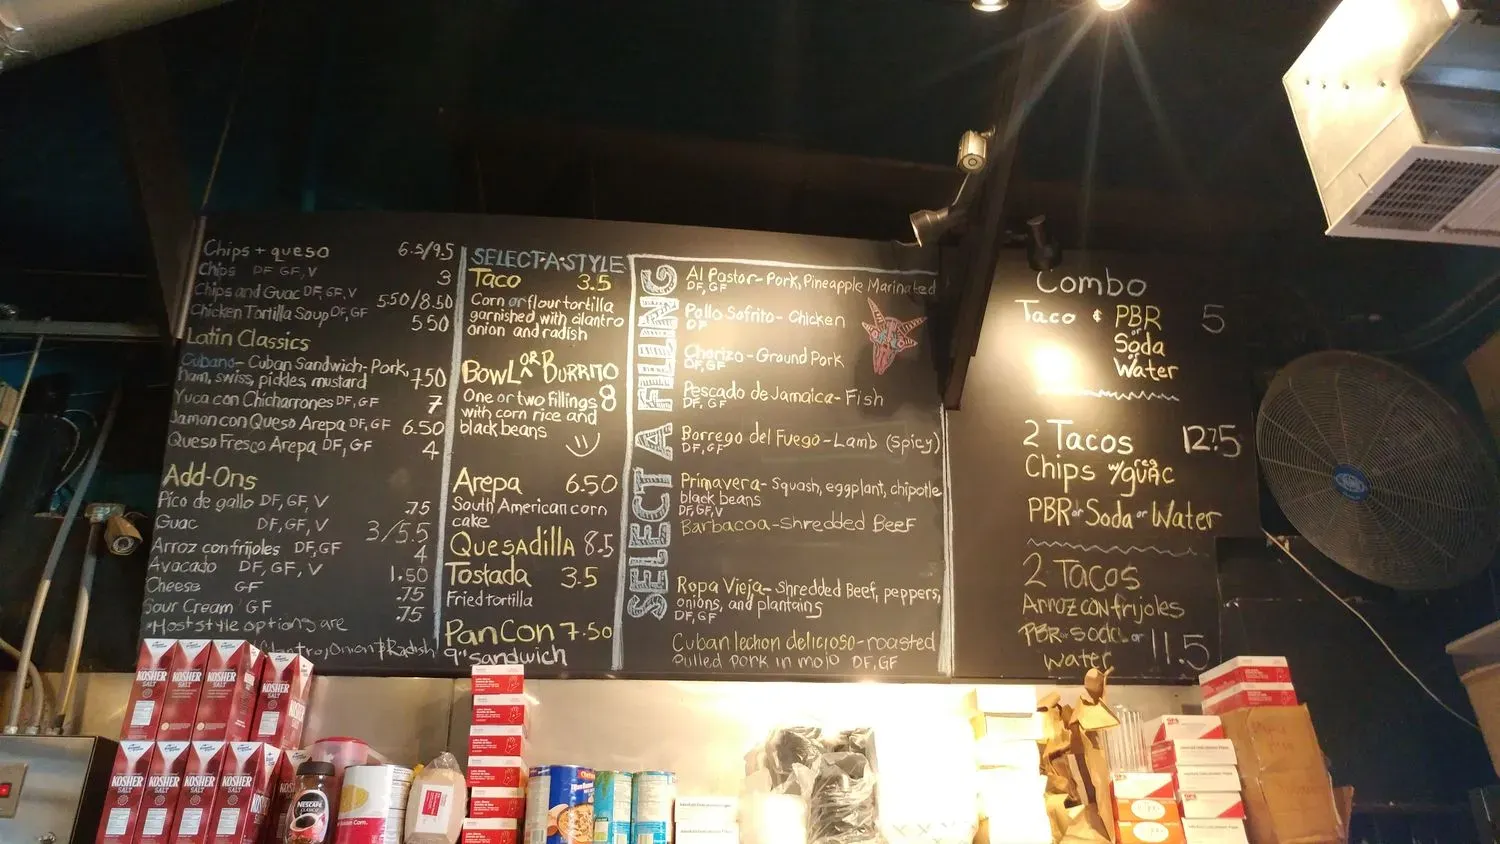 Chips + queso 6.5/9.5
Chips DF GF, V 3
Chips and Guac DF, GF, V 5.50/8.50
Chicken Tortilla Soup DF, GF 5.50
Latin Classics
Cubano- Cuban Sandwich- Pork,
ham, swiss, pickles, mustard 7.50
Yuca con Chicharrones DF, GF 7
Jamon con Queso Arepa DF, GF 6.50
Queso Fresco Arepa DF, GF 4
Add-Ons
Pico de gallo DF, GF, V .75
Guac DF, GF, V 3/5.5
Arroz con frijoles DF, GF 4
Avocado DF, GF, V 1.50
Cheese GF .75
Sour Cream GF .75
*Host style options are
Cilantro, Onion & Radish
SELECT-A-STYLE
Taco 3.5
Corn or flour tortilla
garnished with cilantro
onion and radish
Bowl or Burrito
One or two fillings 8
with corn rice and
black beans
Arepa 6.50
South American corn
cake
Quesadilla 8.5
Tostada 3.5
Fried tortilla
Pan Con 7.50
9" sandwich
SELECT A FILLING
Al Pastor- Pork, Pineapple Marinated
DF, GF
Pollo Sofrito- Chicken
DF
Chorizo- Ground Pork
DF, GF
Pescado de Jamaica- Fish
DF, GF
Borrego del Fuego- Lamb (spicy)
DF, GF
Primavera- Squash, eggplant, chipotle
black beans
DF, GF, V
Barbacoa- Shredded Beef
Ropa Vieja- Shredded Beef, peppers,
onions, and plantains
DF, GF
Cuban lechon delicioso- roasted
pulled pork in mojo DF, GF
Combo
Taco & PBR 5
or
Soda
or
Water
2 Tacos 12.75
Chips w/ reg guac
PBR or Soda or Water
2 Tacos
Arroz con frijoles
PBR or soda or 11.5
water
KOSHER
SALT
KOSHER
SALT
KOSHER
SALT
KOSHER
SALT
KOSHER
SALT
KOSHER
SALT
KOSHER
SALT
KOSHER
SALT
NESCAFE
CLASICO